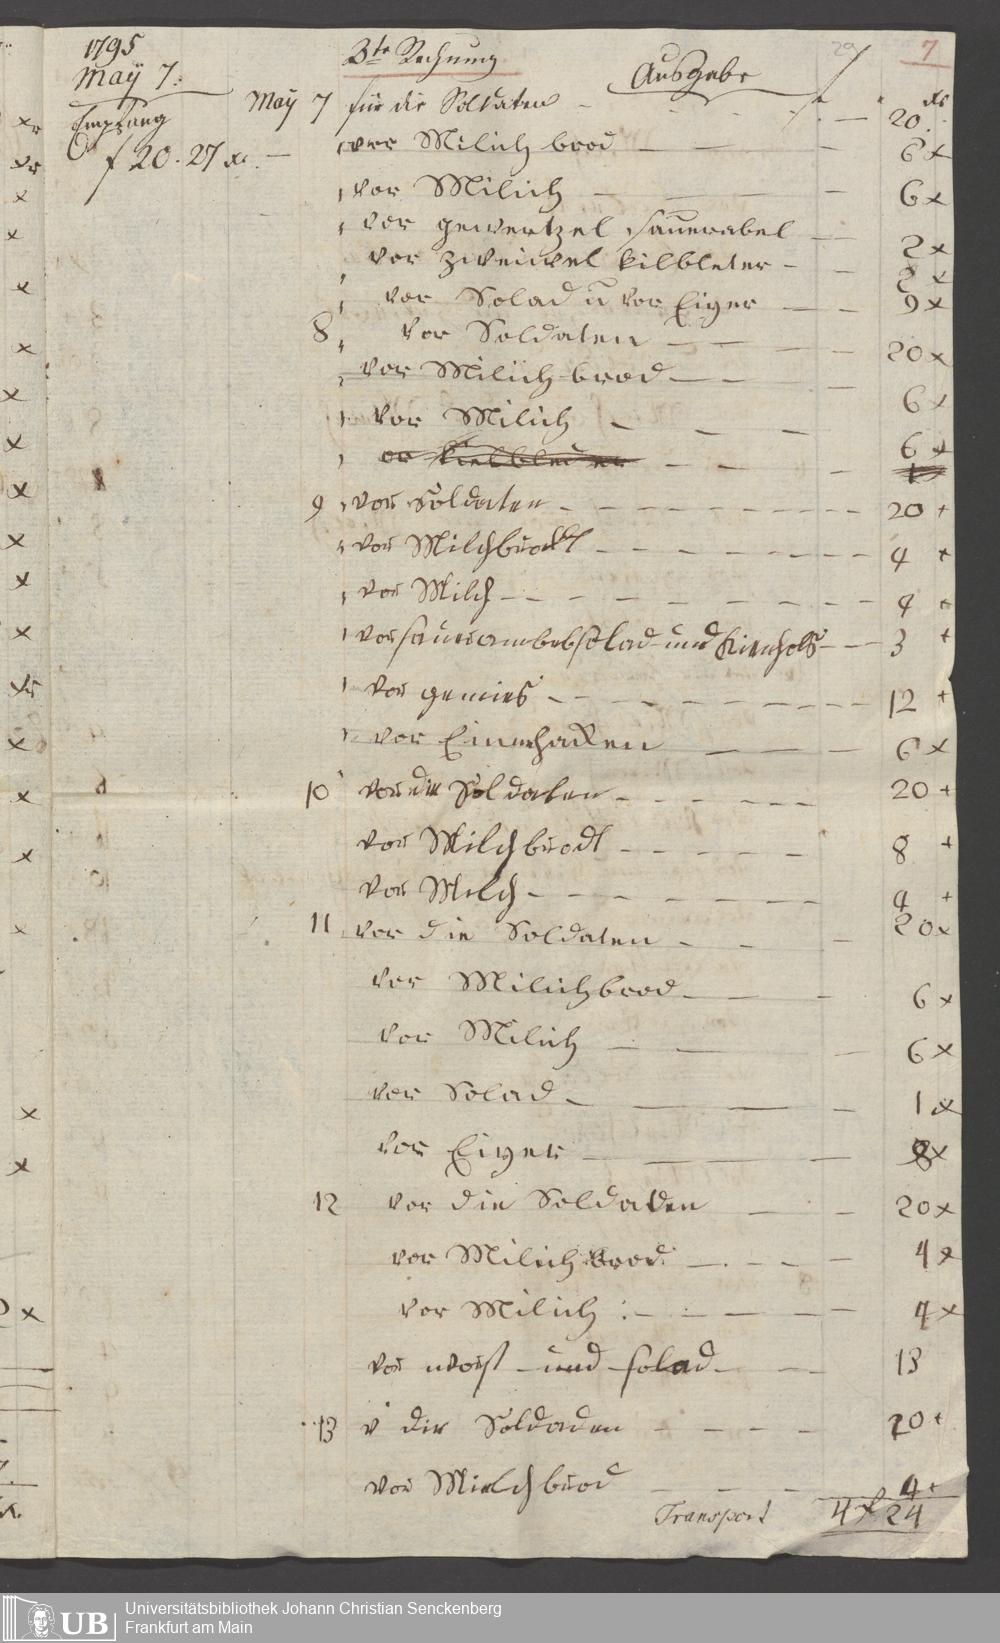 1795
May 7.
Empfang
f 20. 27 xr. —
3te Rechnung
Ausgabe
29
7
xr
May 7 für die Soldaten — 20.
vor Milich brod — 6 x
vor Milich — 6 x
vor gewertzel sauerabel — 2 x
vor zweiwel kilbleter — 2 x
vor Solad u vor Eiger — 9 x
8 vor Soldaten — 20 x
vor Milich brod — 6 x
vor Milich — 6 x
9 vor Soldaten — 20 +
vor Milchbrodt — 4 +
vor Milch — 4 +
vor sauerambebsolad und Kienholß — 3 +
vor gemies — 12 +
vor Einmhacken — 6 x
10 vor die Soldaten — 20 +
vor Milchbrodt — 8 +
vor Milch — 4 +
11 vor die Soldaten — 20 x
vor Milichbrod — 6 x
vor Milich — 6 x
vor Solad — 1 x
vor Eiger — 8 x
12 vor die Soldaten — 20 x
vor Milich brod — 4 x
vor Milich — 4 x
vor worst und solad — 13
13 v die Soldaden — 20 +
vor Mielchbrod — 4 +
Transport 4 f 24
UB Universitätsbibliothek Johann Christian Senckenberg
Frankfurt am Main